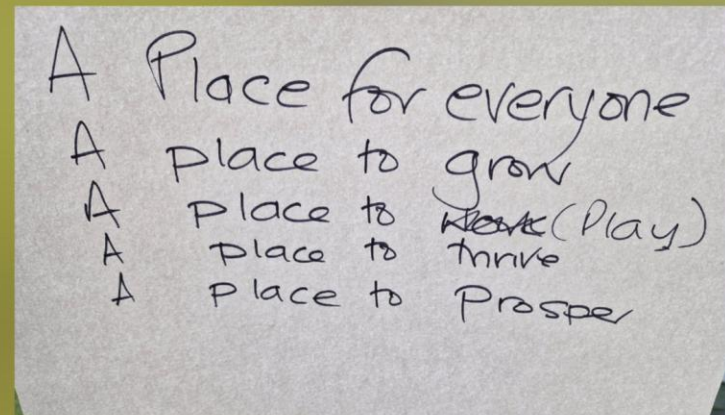 A Place for everyone
A place to grow
A place to (Play)
A place to thrive
A place to Prosper